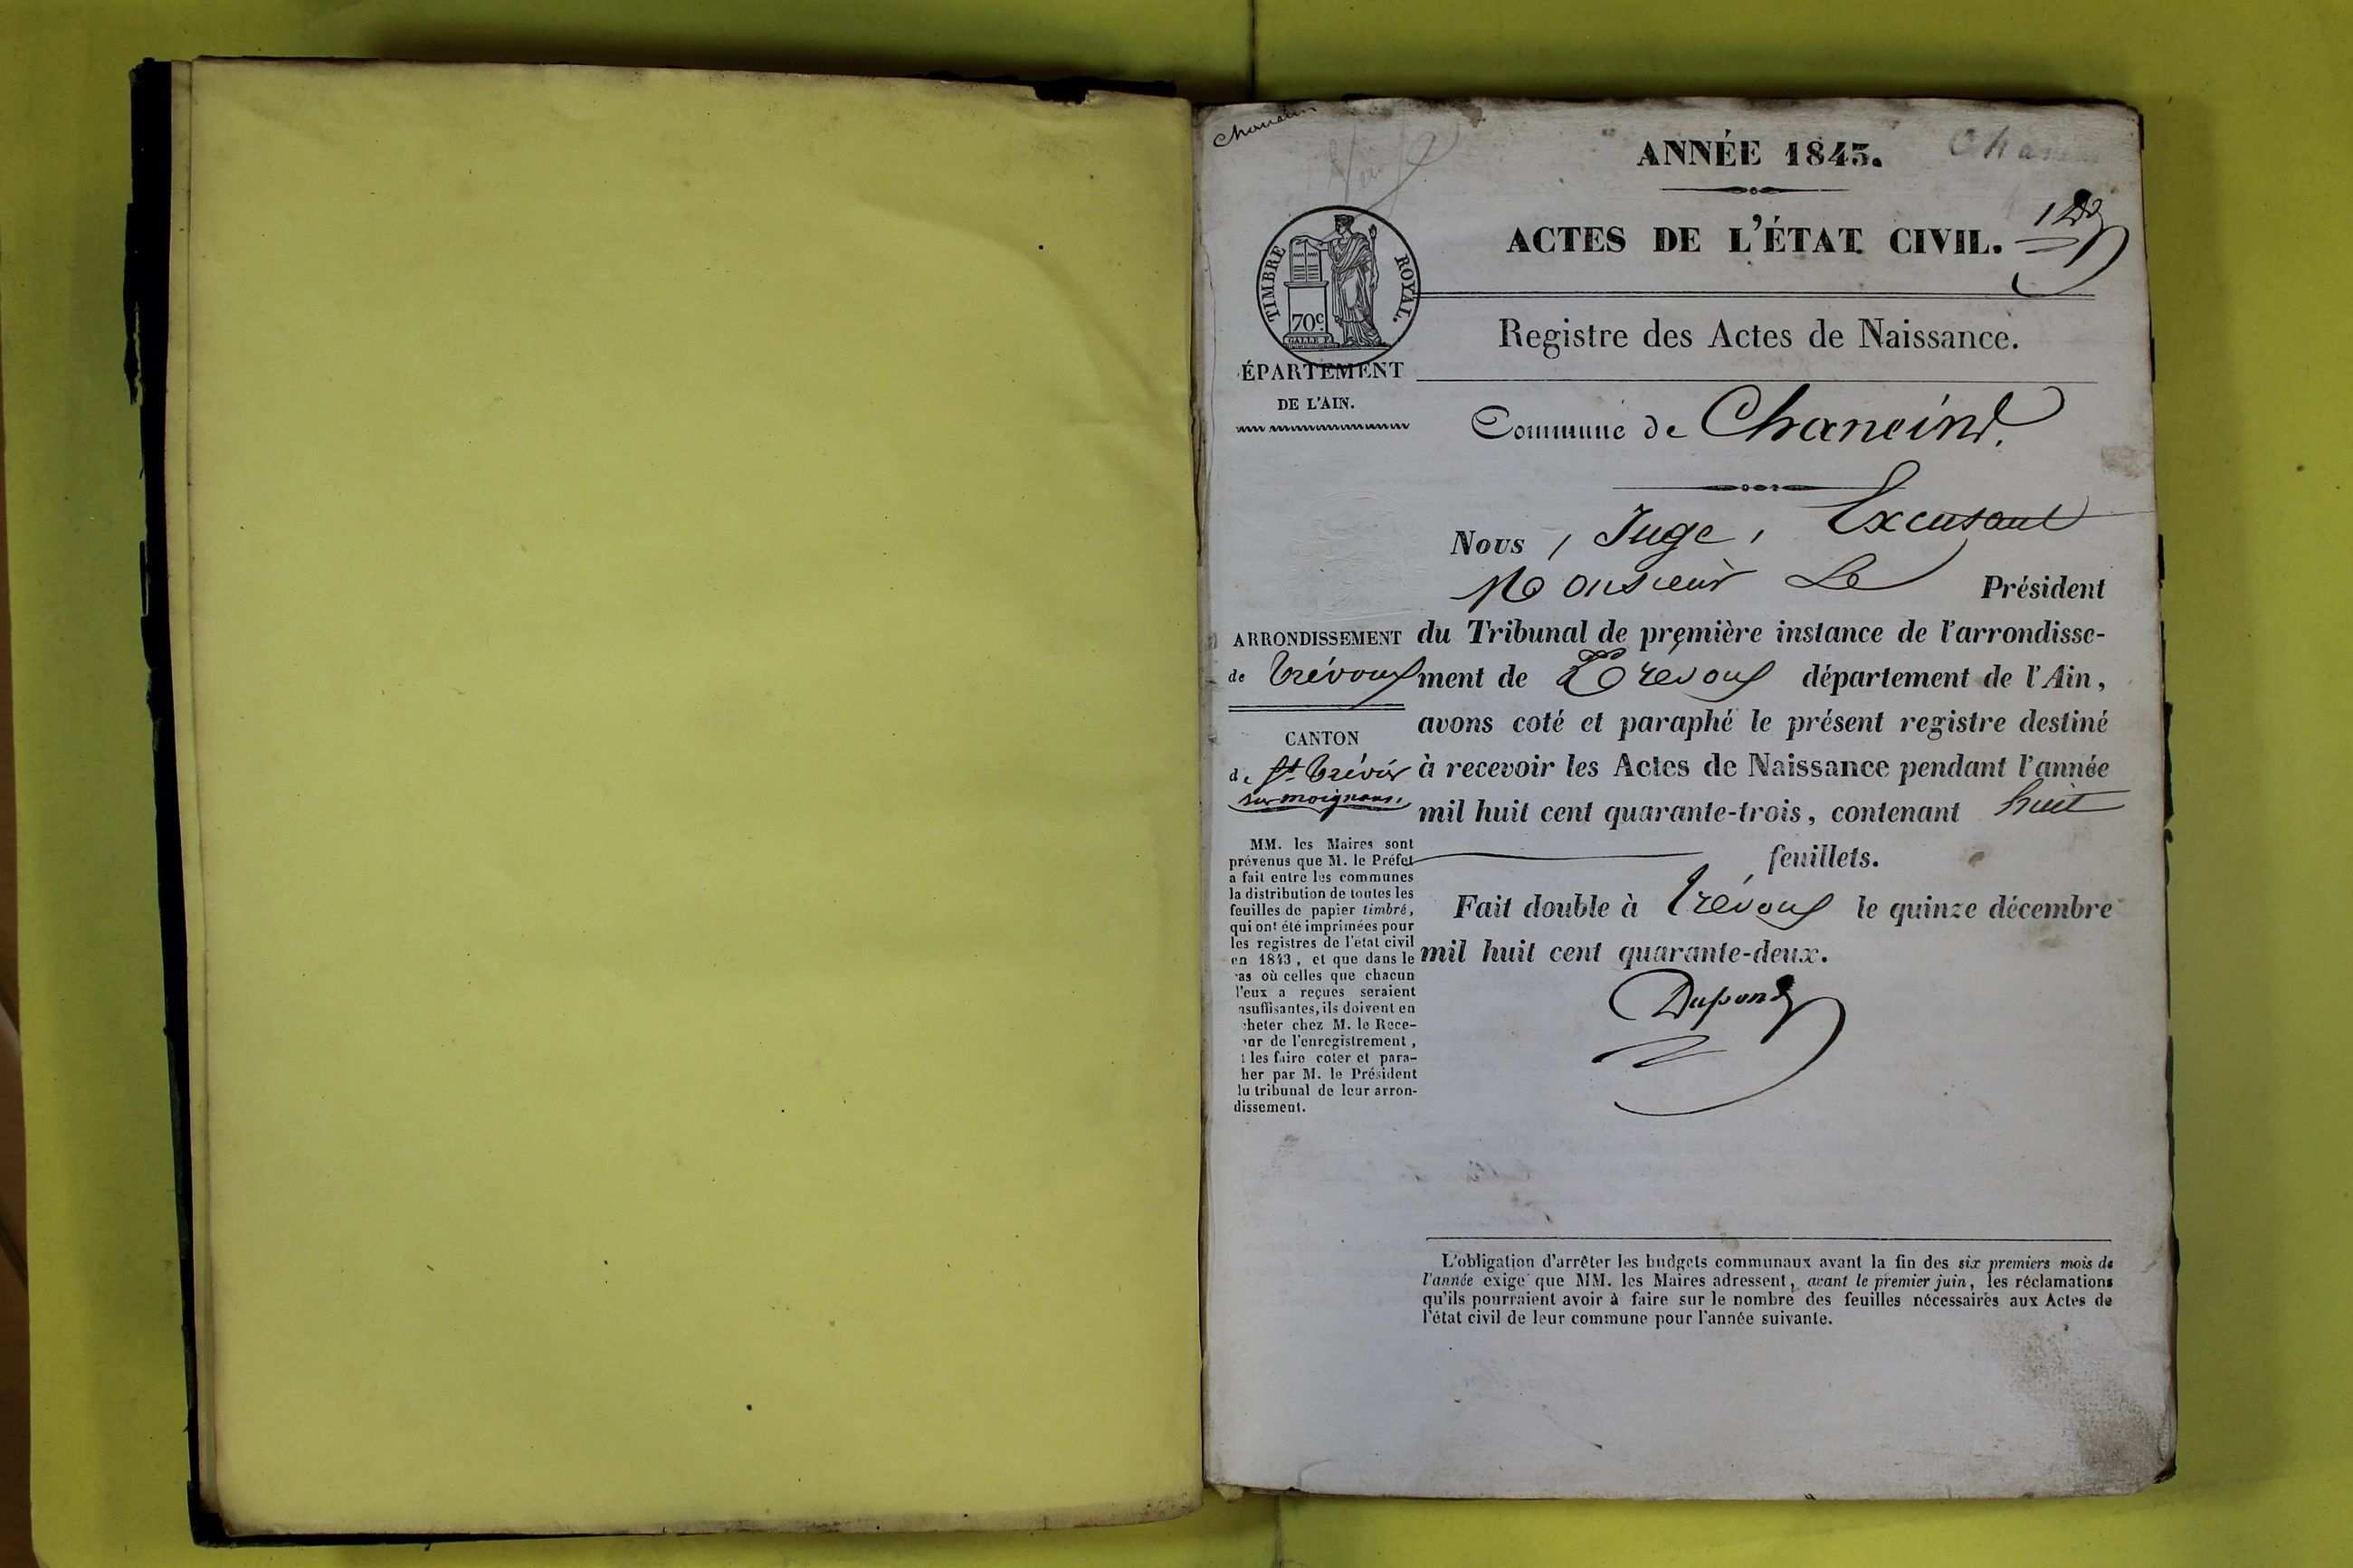 Chanein
ANNÉE 1843.
ACTES DE L'ÉTAT CIVIL.
TIMBRE ROYAL.
70c
Registre des Actes de Naissance.
ÉPARTEMENT
DE L'AIN.
Commune de Chaneins.
Nous, Juge, Excusant
Monsieur Le Président
ARRONDISSEMENT
de Trévoux
du Tribunal de première instance de l'arrondisse-
ment de Trévoux département de l'Ain,
avons coté et paraphé le présent registre destiné
à recevoir les Actes de Naissance pendant l'année
mil huit cent quarante-trois, contenant huit
feuillets.
Fait double à Trévoux le quinze décembre
mil huit cent quarante-deux.
Dupond
CANTON
de St. Trivier
sur moignans.
MM. les Maires sont
prévenus que M. le Préfet
a fait entre les communes
la distribution de toutes les
feuilles de papier timbré,
qui ont été imprimées pour
les registres de l'état civil
en 1843, et que dans le
as où celles que chacun
l'eux a reçues seraient
nsuffisantes, ils doivent en
cheter chez M. le Rece-
ur de l'enregistrement,
t les faire coter et para-
her par M. le Président
lu tribunal de leur arron-
dissement.
L'obligation d'arrêter les budgets communaux avant la fin des six premiers mois de
l'année exige que MM. les Maires adressent, avant le premier juin, les réclamations
qu'ils pourraient avoir à faire sur le nombre des feuilles nécessaires aux Actes de
l'état civil de leur commune pour l'année suivante.